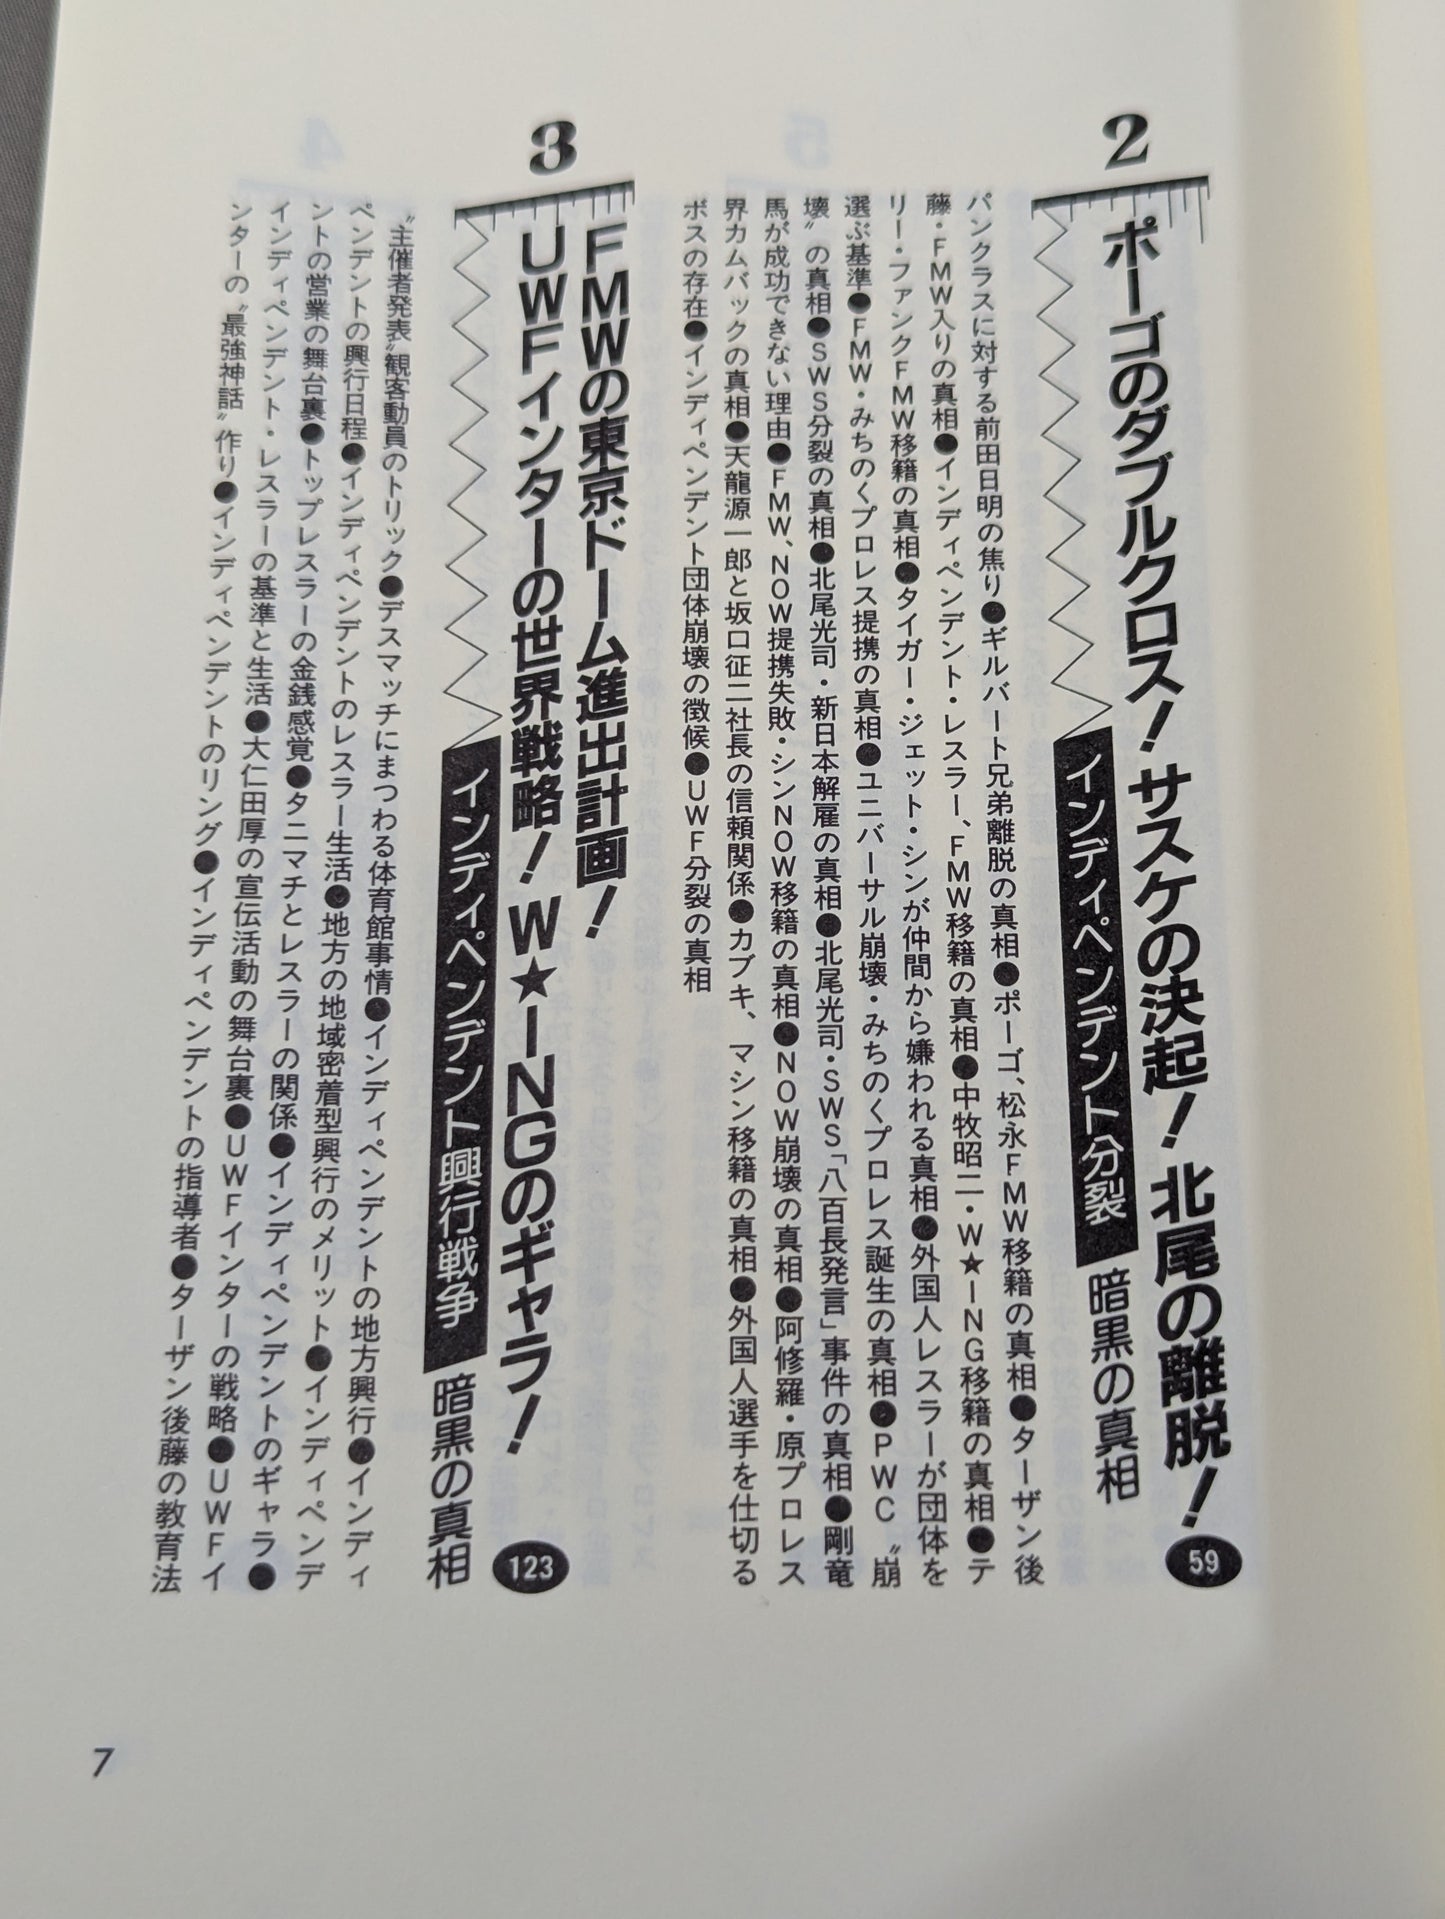 2
ポーゴのダブルクロス！サスケの決起！北尾の離脱！
インディペンデント分裂 暗黒の真相
59
パンクラスに対する前田日明の焦り●ギルバート兄弟離脱の真相●ポーゴ、松永FMW移籍の真相●ターザン後
藤・FMW入りの真相●インディペンデント・レスラー、FMW移籍の真相●中牧昭二・W★ING移籍の真相●テ
リー・ファンクFMW移籍の真相●タイガー・ジェット・シンが仲間から嫌われる真相●外国人レスラーが団体を
選ぶ基準●FMW・みちのくプロレス提携の真相●ユニバーサル崩壊・みちのくプロレス誕生の真相●PWC〝崩
壊〟の真相●SWS分裂の真相●北尾光司・新日本解雇の真相●北尾光司・SWS「八百長発言」事件の真相●剛竜
馬が成功できない理由●FMW、NOW提携失敗・シンNOW移籍の真相●NOW崩壊の真相●阿修羅・原プロレス
界カムバックの真相●天龍源一郎と坂口征二社長の信頼関係●カブキ、マシン移籍の真相●外国人選手を仕切る
ボスの存在●インディペンデント団体崩壊の徴候●UWF分裂の真相
3
FMWの東京ドーム進出計画！
UWFインターの世界戦略！W★INGのギャラ！
インディペンデント興行戦争 暗黒の真相
123
〝主催者発表〟観客動員のトリック●デスマッチにまつわる体育館事情●インディペンデントの地方興行●インディ
ペンデントの興行日程●インディペンデントのレスラー生活●地方の地域密着型興行のメリット●インディペンデ
ントの営業の舞台裏●トップレスラーの金銭感覚●タニマチとレスラーの関係●インディペンデントのギャラ●
インディペンデント・レスラーの基準と生活●大仁田厚の宣伝活動の舞台裏●UWFインターの戦略●UWFイ
ンターの〝最強神話〟作り●インディペンデントのリング●インディペンデントの指導者●ターザン後藤の教育法
7